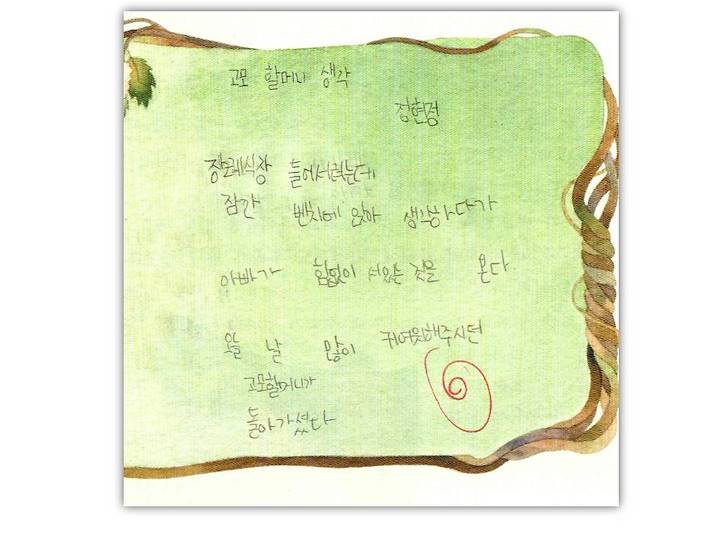 고모 할머니 생각
정현정
장레식장 들어서려는데
잠깐 벤치에 앉아 생각하다가
아빠가 힘없이 서있는 것을 본다
오늘 날 많이 귀여워해주시던
고모할머니가
돌아가셨다